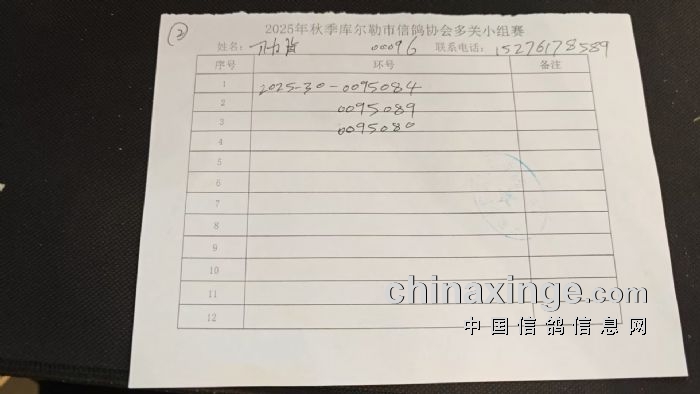 ②
2025年秋季库尔勒市信鸽协会多关小组赛
姓名： 00096 联系电话：15276178589
序号 环号 备注
1 2025-30-0095084
2 0095089
3 0095080
4
5
6
7
8
9
10
11
12
chinaxinge.com
中国信鸽信息网